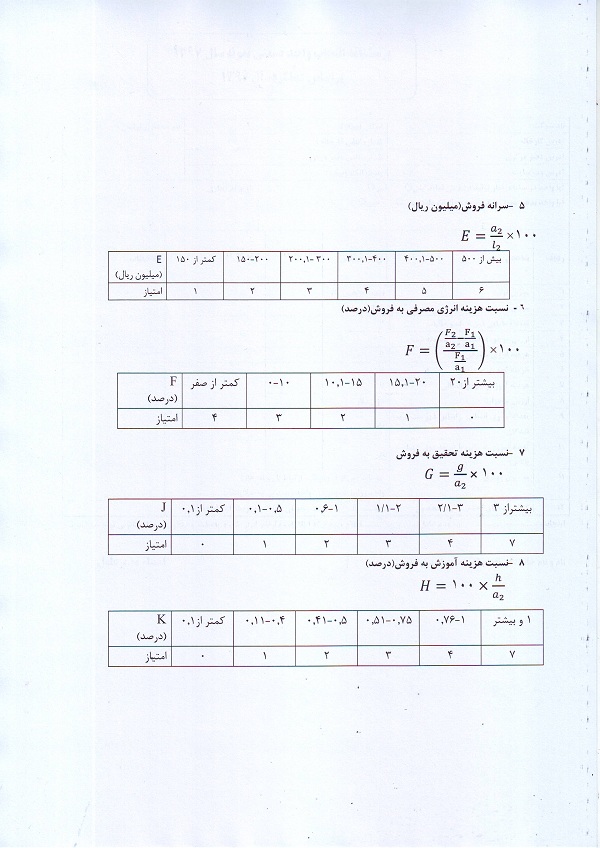 ۵ -سرانه فروش(میلیون ریال)
E = a₂/l₂ ×۱۰۰
E (میلیون ریال) | کمتر از ۱۵۰ | ۱۵۰-۲۰۰ | ۲۰۰,۱-۳۰۰ | ۳۰۰,۱-۴۰۰ | ۴۰۰,۱-۵۰۰ | بیش از ۵۰۰
امتیاز | ۱ | ۲ | ۳ | ۴ | ۵ | ۶
۶ - نسبت هزینه انرژی مصرفی به فروش(درصد)
F = ((F₂/a₂ - F₁/a₁) / (F₁/a₁)) ×۱۰۰
F (درصد) | کمتر از صفر | ۰-۱۰ | ۱۰,۱-۱۵ | ۱۵,۱-۲۰ | بیشتر از۲۰
امتیاز | ۴ | ۳ | ۲ | ۱ | ۰
۷ -نسبت هزینه تحقیق به فروش
G = g/a₂ × ۱۰۰
J (درصد) | کمتر از۰,۱ | ۰,۱-۰,۵ | ۰,۶-۱ | ۱/۱-۲ | ۲/۱-۳ | بیشتراز ۳
امتیاز | ۰ | ۱ | ۲ | ۳ | ۴ | ۷
۸ -نسبت هزینه آموزش به فروش(درصد)
H = ۱۰۰ × h/a₂
K (درصد) | کمتر از۰,۱ | ۰,۱۱-۰,۴ | ۰,۴۱-۰,۵ | ۰,۵۱-۰,۷۵ | ۰,۷۶-۱ | ۱ و بیشتر
امتیاز | ۰ | ۱ | ۲ | ۳ | ۴ | ۷